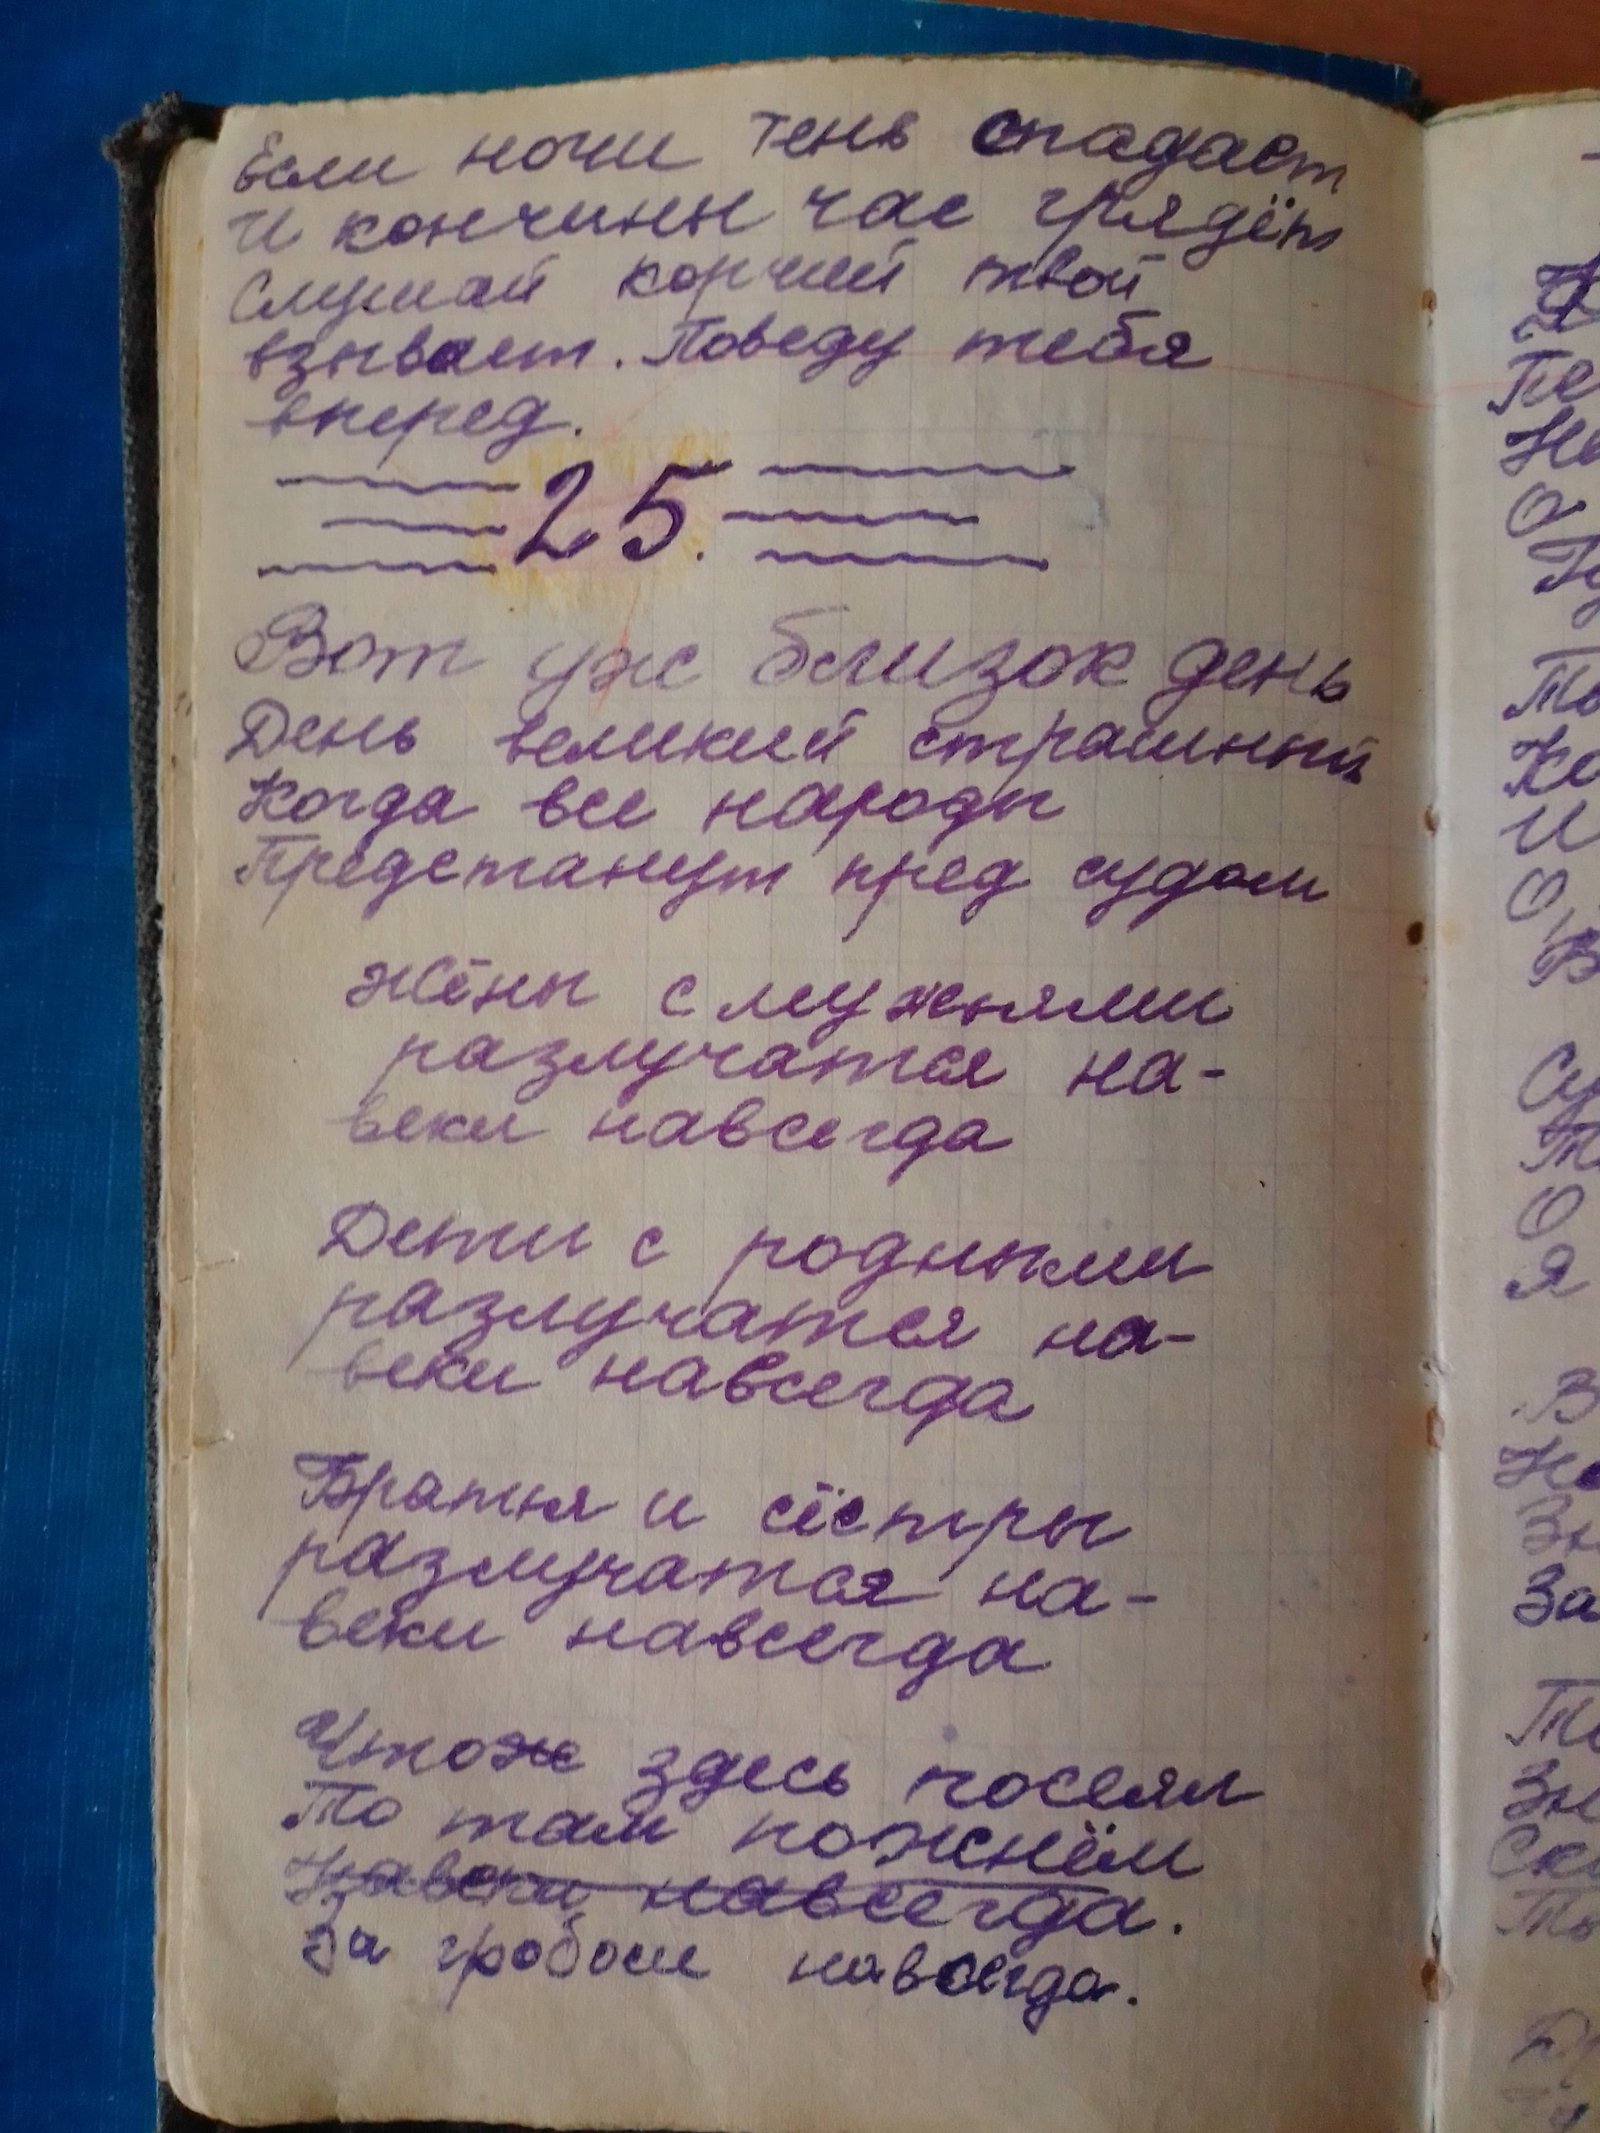 Если ночи тень спадает
И кончины час грядёт
Слушай кормчий твой
взывает. Поведу тебя
вперед.
25.
Вот уж близок день
День великий страшный
Когда все народы
Предстанут пред судом
Жёны с мужьями
разлучатся на-
веки навсегда
Дети с родными
разлучатся на-
веки навсегда
Братья и сёстры
разлучатся на-
веки навсегда
Чтож здесь посеял
То там пожнём
Навеки навсегда.
За гробом навсегда.
Пе
На
О
То
Ко
И
О,
В
Су
О
Я
В
Но
Зн
За
То
Зн
Ск